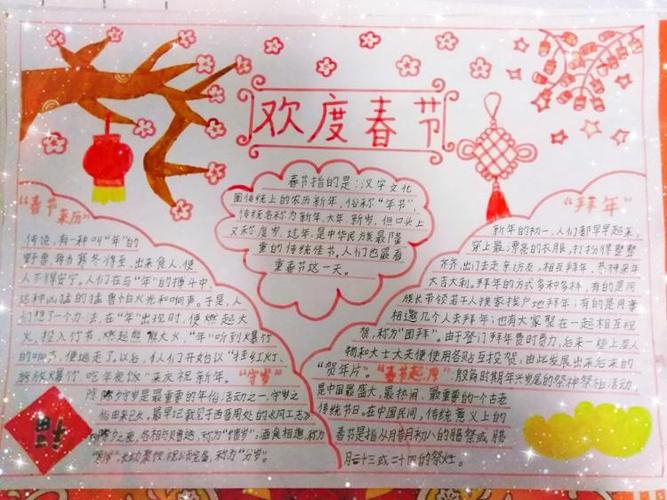 欢度春节
春节指的是:汉字文化
圈传统上的农历新年,俗称"年节",
传统名称为新年、大年、新岁,但口头上
又称度岁,过年,是中华民族最隆
重的传统佳节,人们也最看
重春节这一天。
"春节
来历"
传说,有一种叫"年"的
野兽每为寒冬,出来食人,使
人不得安宁。人们在与"年"的搏斗中,
这种凶猛的猛兽怕火光和响声。于是,人
们想了个办法,在"年"出现时,便燃起大
火,投入竹节,燃起熊熊大火,"年"听到火爆竹
的响声,便逃走了。以后,人们开始以"挂红灯、
放爆竹、吃年夜饭"来庆祝新年。
"守岁"
除夕守岁是最重要的年俗活动之一,守岁之
俗由来已久。最早记载见于西晋周处的《风土志》
除夕之夜,各相与赠送,称为"馈岁",酒食相邀,称为
称为"分岁"。
"拜年"
新年的初一,人们都早早起来,
穿上最漂亮的衣服,打扮得整整
齐齐,出门去走亲访友,相互拜年,恭祝来年
大吉大利。拜年的方式多种多样,有的是同
族长带领若干人挨家挨户地拜年;有的是同事
相邀几个人去拜年;也有大家聚在一起相互祝
贺,称为"团拜"。由于登门拜年费时费力,后来一些上层人
物和士大夫便使用各贴互投贺,由此发展出来后来的
"贺年片"。
"春节起源"
殷商时期年头岁尾的祭神祭祖活动,
是中国最盛大、最热闹、最重要的一个古老
传统节日。在中国民间,传统意义上的
春节是指从腊月初八的腊祭或腊
月二十三或二十四的祭灶。
福